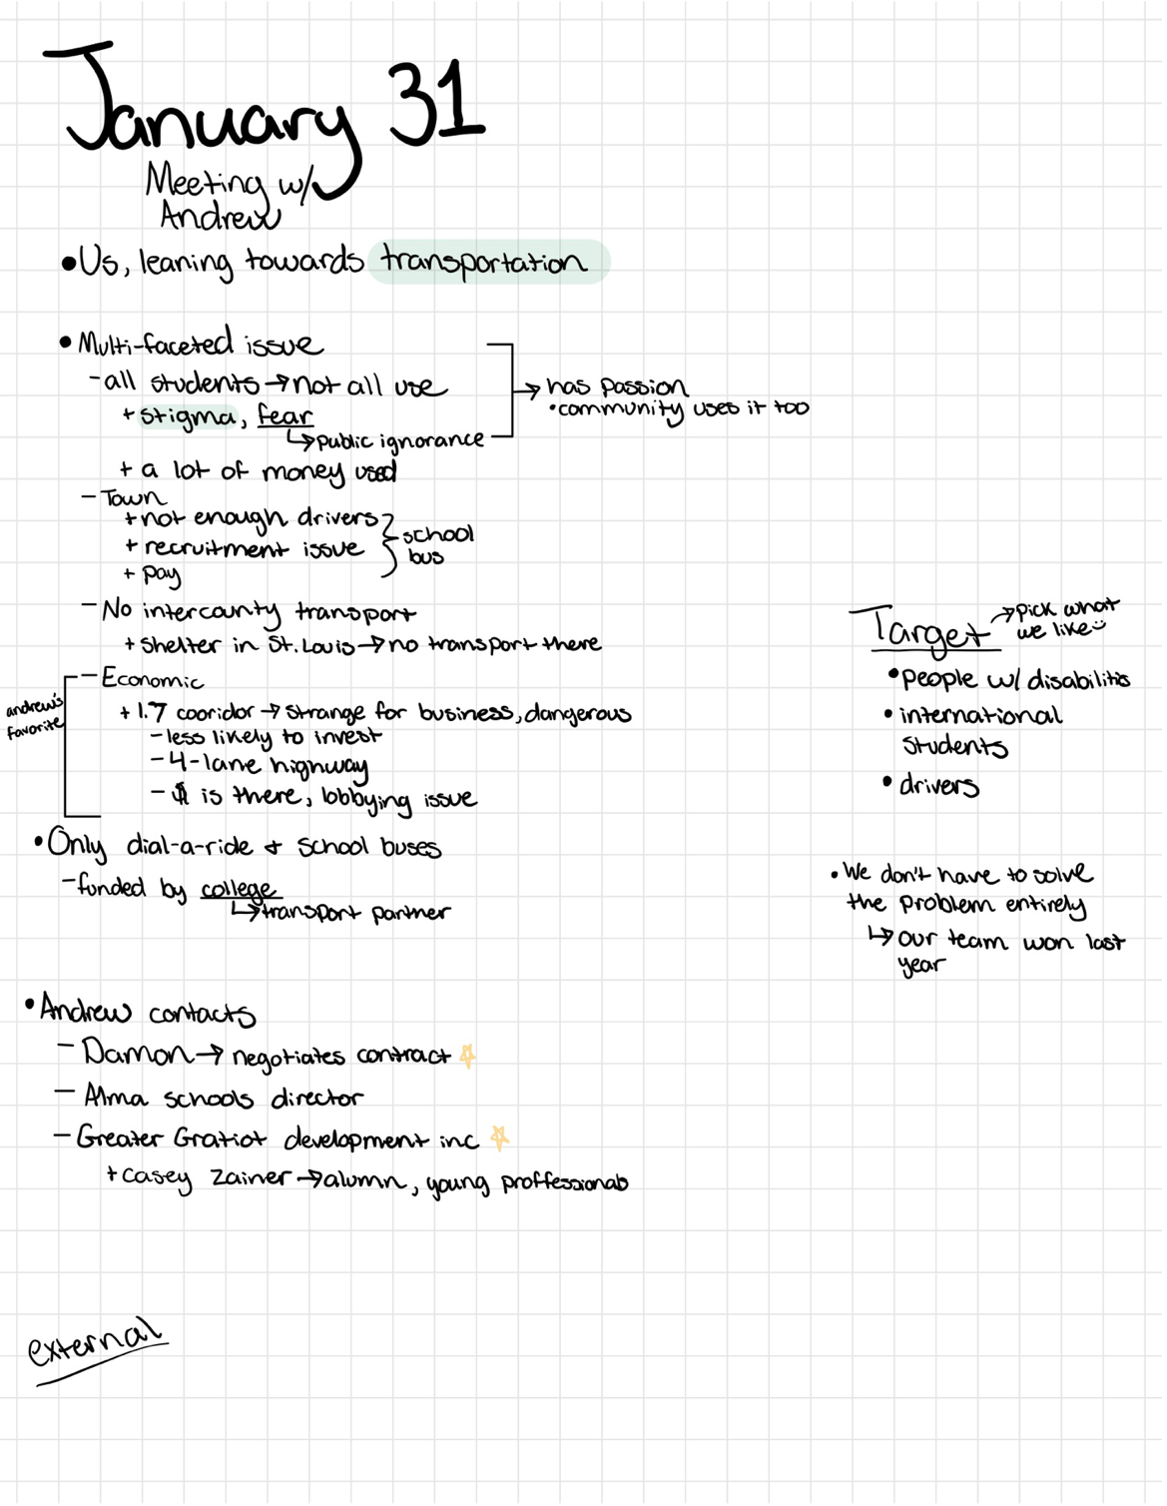 January 31
Meeting w/
Andrew
• Us, leaning towards transportation
• Multi-faceted issue
- all students → not all use
+ stigma, fear
↳ public ignorance
→ has passion
• community uses it too
+ a lot of money used
- Town
+ not enough drivers
+ recruitment issue
+ pay
school
bus
- No intercounty transport
+ shelter in St. Louis → no transport there
andrew's
favorite
- Economic
+ 1.7 cooridor → strange for business, dangerous
- less likely to invest
- 4-lane highway
- $ is there, lobbying issue
• Only dial-a-ride + school buses
- funded by college
↳ transport partner
Target → pick what
we like
• people w/ disabilitis
• international
students
• drivers
• We don't have to solve
the problem entirely
↳ our team won last
year
• Andrew contacts
- Damon → negotiates contract ☆
- Alma schools director
- Greater Gratiot development inc ☆
+ casey zainer → alumn, young proffessionals
external